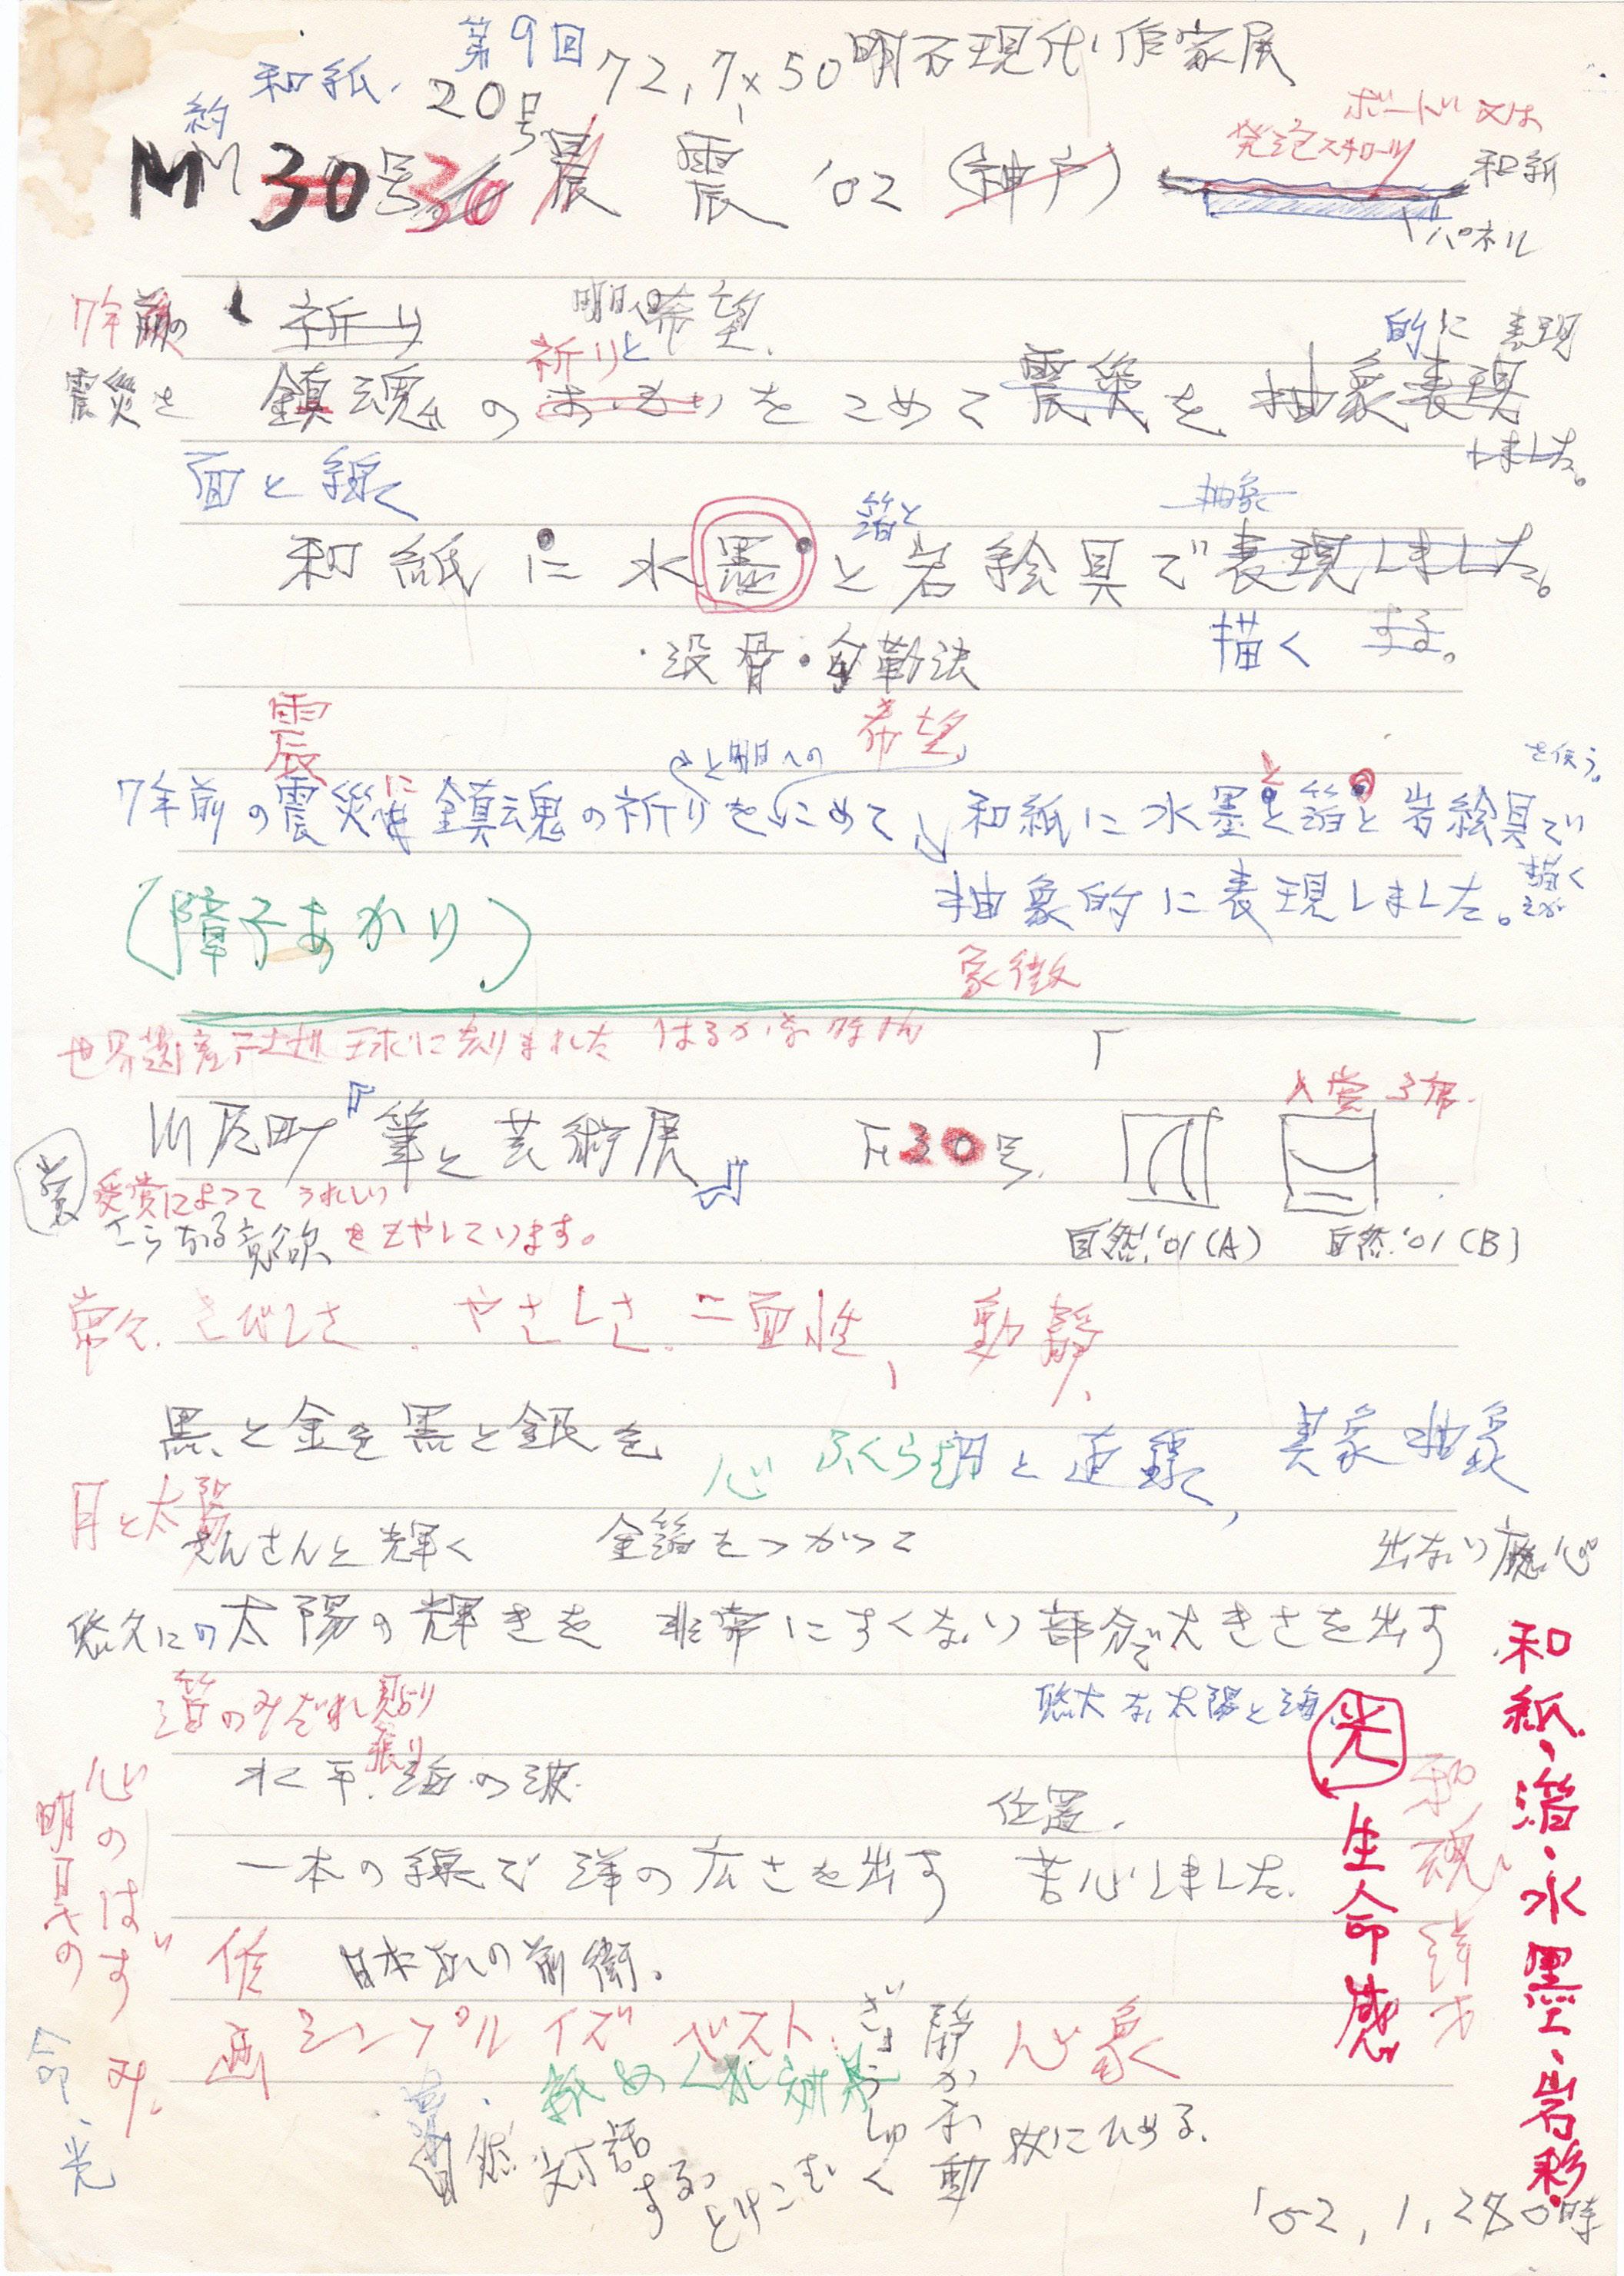 第9回 72,7×50 明石現代作家展
和紙、 20号
約 ボード又は
発泡スチロール
M 30号 30 震 '02 (神戸) 和紙
パネル
7年前の 祈り 明日への希望、 的に表現
祈りと
震災を 鎮魂のおもいをこめて震災を抽象表現
しました。
面と線 箔と 抽象
和紙に水墨と岩絵具で表現しました。
描く する。
・没骨・鉤勒法
震 希望、
と明日への を使う。
7年前の震災に鎮魂の祈りをこめて 和紙に水墨と箔と岩絵具で
抽象的に表現しました。 描く
(障子あかり)
象徴
世界遺産 に刻まれた はるかな
入賞 3席.
川尻町『筆と芸術展』 F30号.
賞 受賞によって うれしい
さらなる意欲をもやしています。
自然'01(A) 自然'01(B)
きびしさ、やさしさ、二面性、動静、
黒と金を 黒と銀を
心 ふくらむ 円と直線、 具象 抽象
月と太陽
さんさんと輝く 金箔をつかって 出ない
悠久の太陽の輝きを 非常にすくない部分で大きさを出す
箔のみだれ貼り 悠大な太陽と海
張り
水平、海の波
位置、
一本の線で洋の広さを出す 苦心しました。
日本画の前衛。
シンプル イズ ベスト 心象
自然 対話する とけこむ
静かな動
状にひめる。
心のはずみ。
明日への
命、光
光 生命感
和魂洋才
和紙、箔、水墨、岩彩
'02,1,28 0時